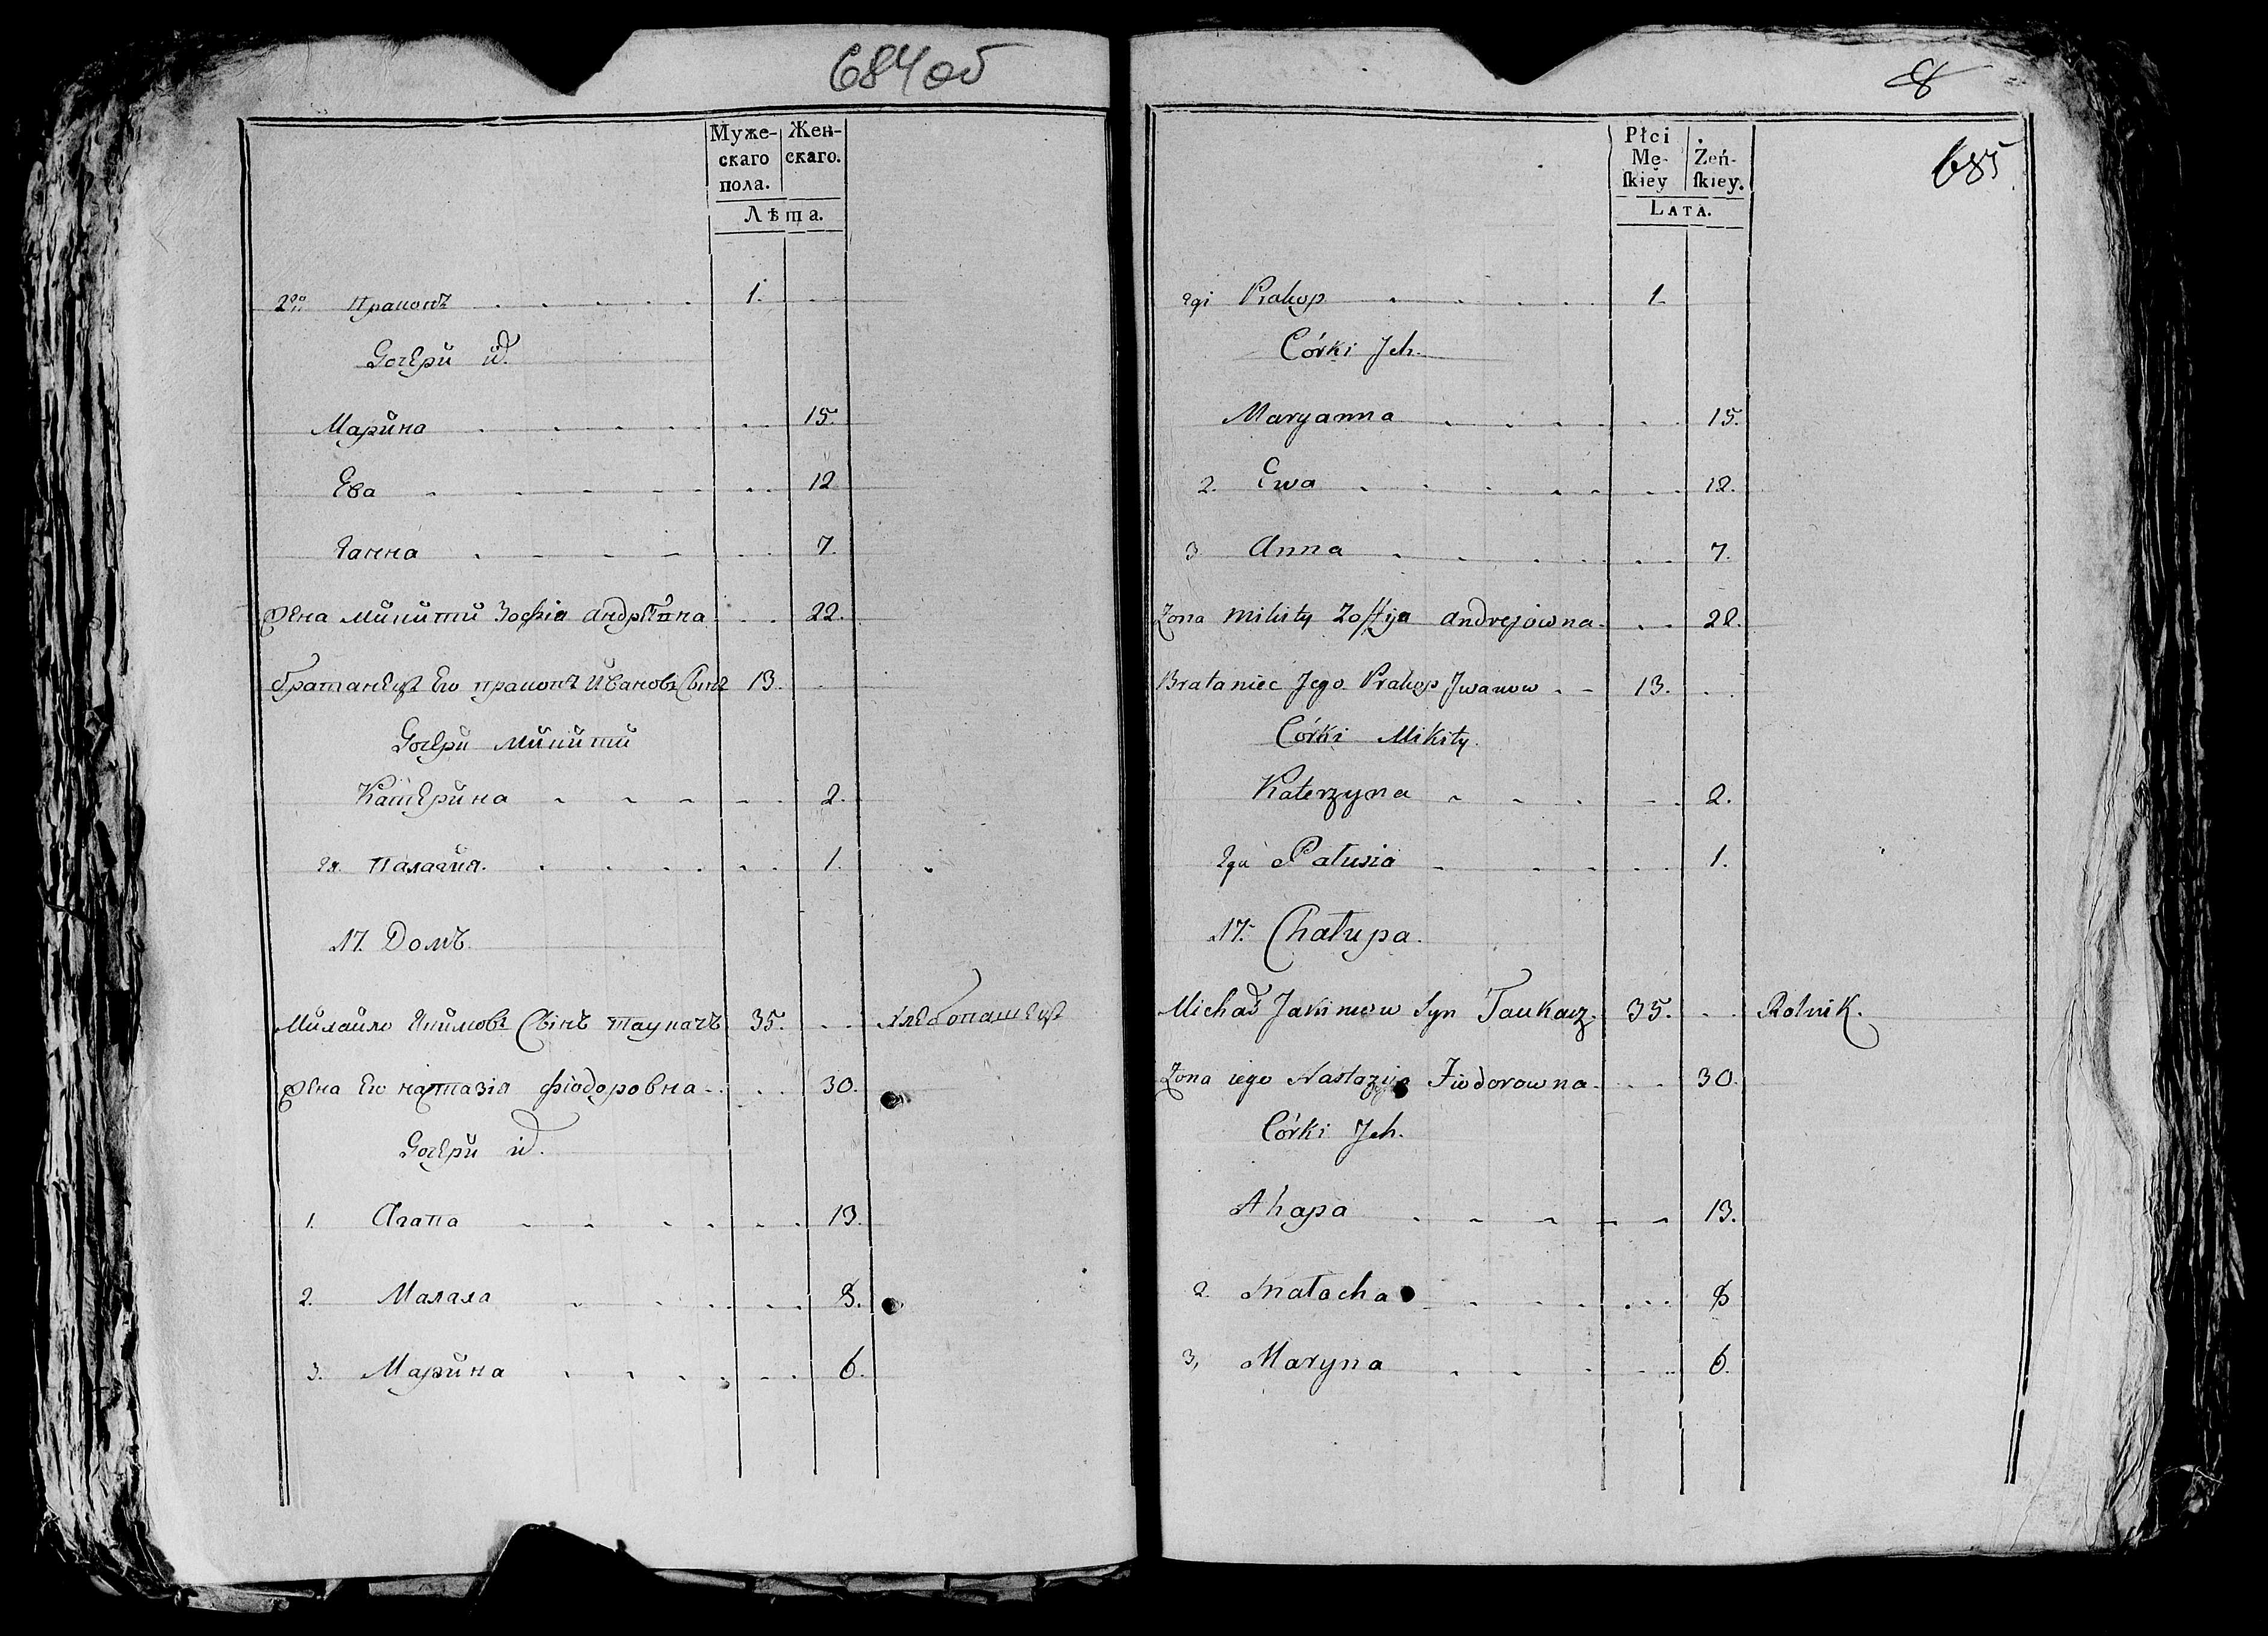 684об
Муже- Жен-
скаго скаго.
пола.
Лѣта.
2го Пракопъ 1.
Дочери их
Марина 15.
Ева 12
Ганна 7.
Жена Микити Зофія андрѣйна 22.
братанецъ Его пракопъ Ивановъ Сынъ 13.
Дочери Микити
Катерина 2.
2я. Палагия. 1.
17. Домъ
Михайло Якимовъ Сынъ таукачъ 35. Хлебопашецъ
Жена Его настазія фіодоровна 30.
Дочери их.
1. Агапа 13.
2. Малаха 8.
3. Марина 6.
8
685
Płci
Mę- Żeń-
skiey skiey.
Lata.
2gi Prakop 1
Córki Jch.
Maryanna 15.
2. Ewa 12.
3 Anna 7.
Żona Mikity Zoffija Andrejowna 22.
Brataniec Jego Prakop Jwanow 13.
Córki Mikity.
Katerzyna 2.
2ga Pałusia 1.
17. Chałupa.
Michał Jakimow Syn Taukacz. 35. Rolnik.
Żona iego Nastazija Fiodorowna 30.
Córki Jch.
Ahapa 13.
2. Małacha 8
3, Maryna 6.